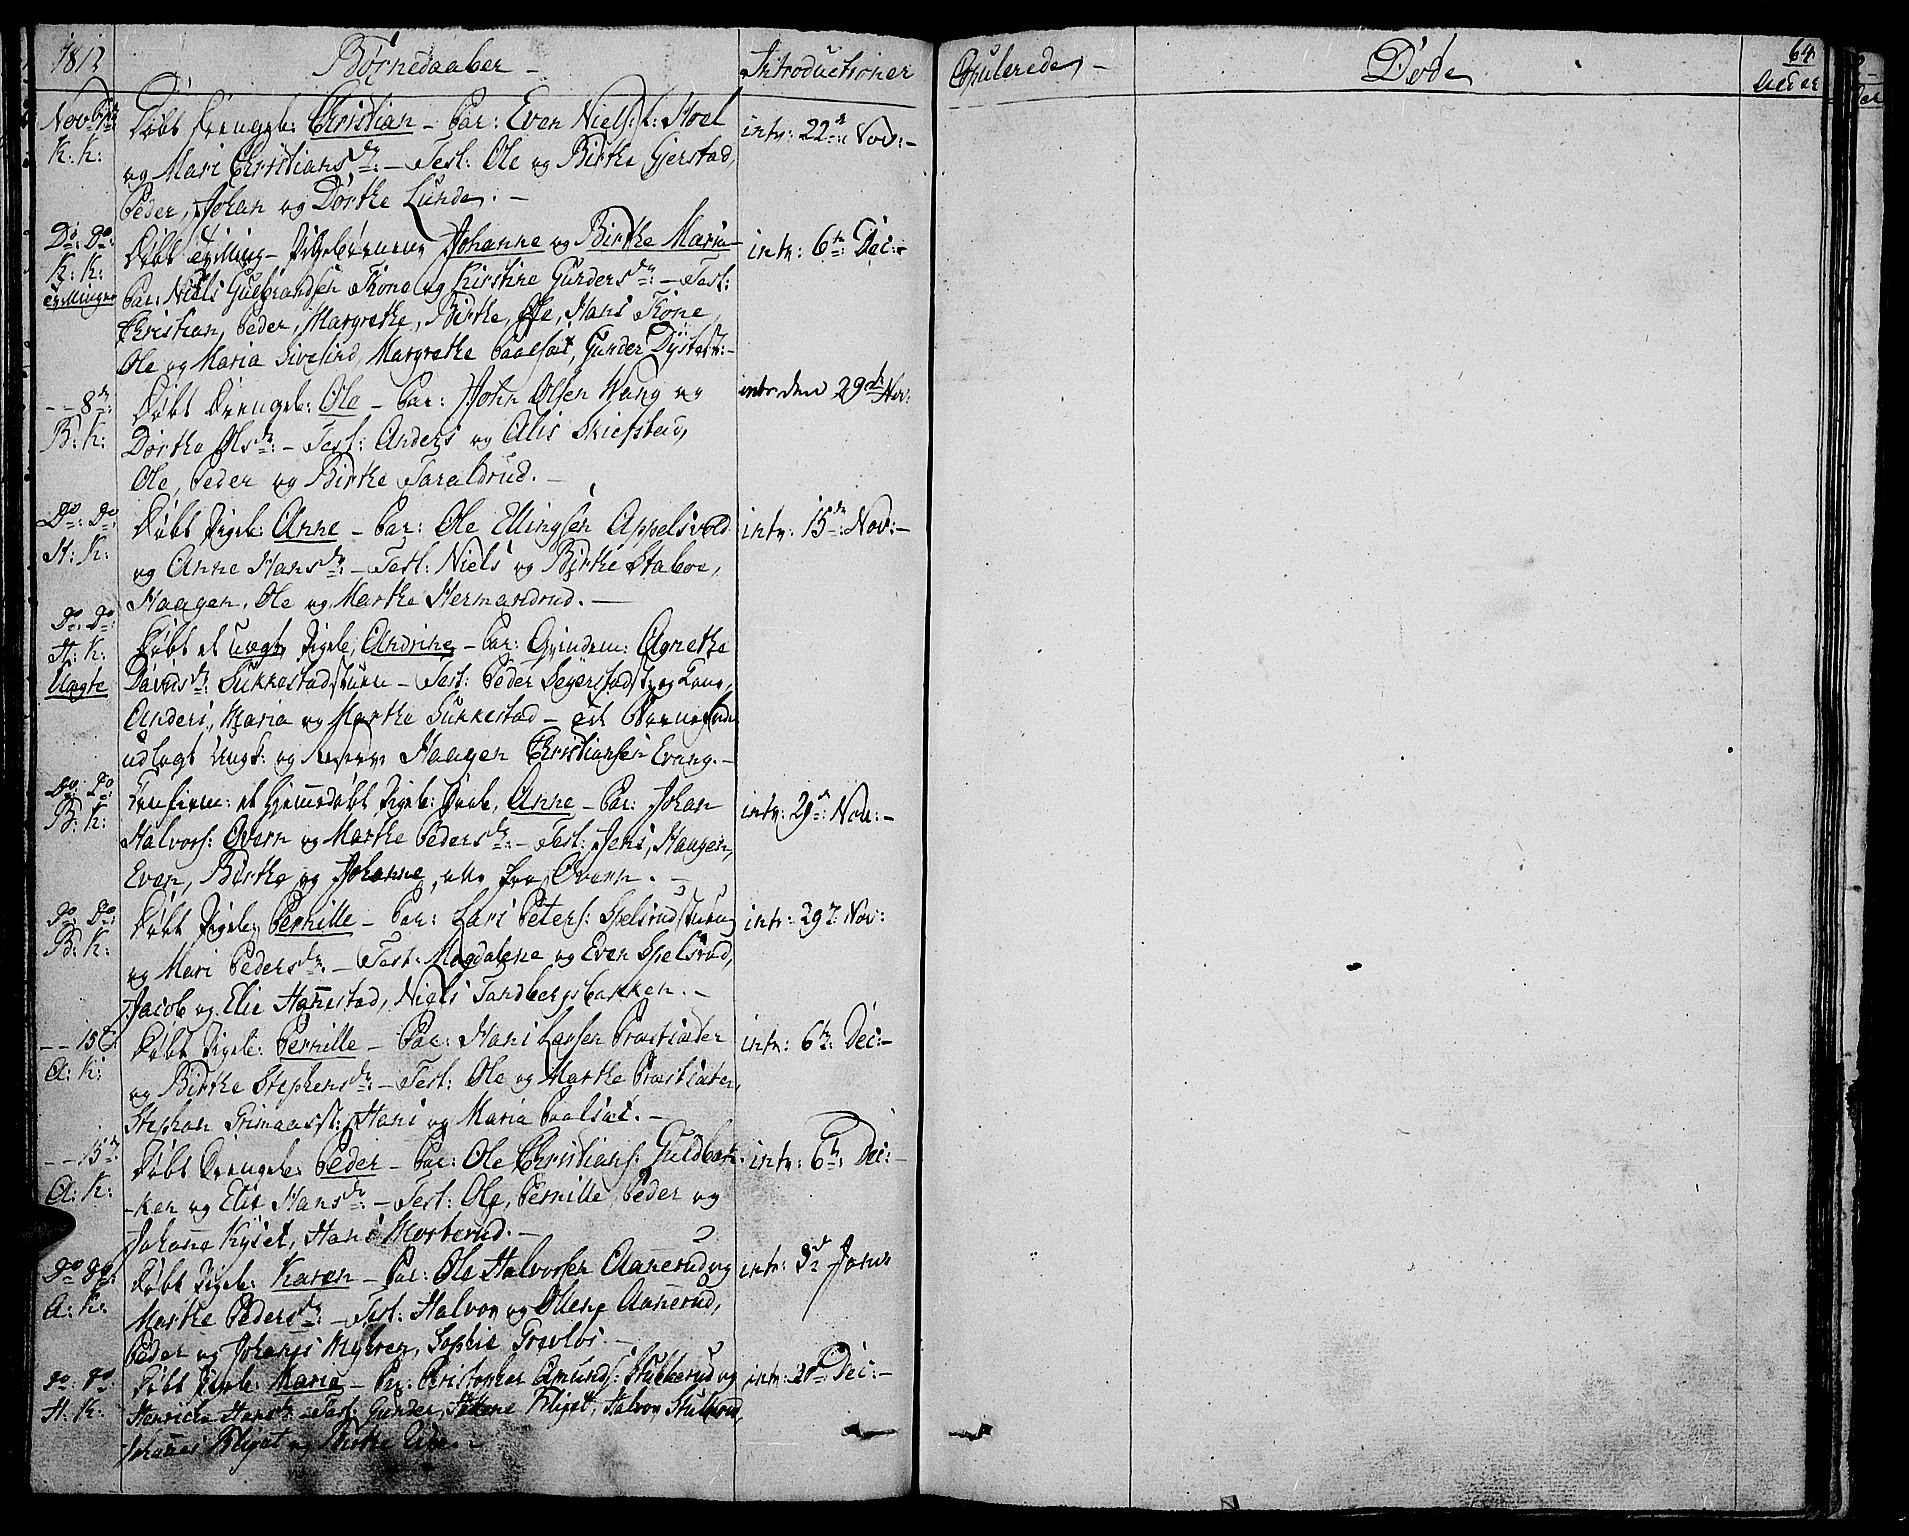 1812
Børnedaaber —
Introductioner
Copulerede, —
Døde
64
Nov: 1ste
K: K:
Døbt Drengeb: Christian — Par: Even Niels: t: Hoel
og Mari Christiansdr: — Test: Ole og Birthe Gjerstad,
Peder, Johan og Dorthe Lunde. —
intr: 22de Nov: —
Do: Do:
K: K:
Tvillinger
Døbt Tvilling- Pigebørnene Johanne og Birthe Maria
Par: Niels Gulbrandsen Trone og Kirstine Gundersdr: — Test:
Christian, Peder, Margrethe, Birthe, Ole, Hans Trone,
Ole og Maria Sivesind, Margrethe Paalsæt, Gunder Dyste
intr: 6te Dec: —
— — 8de:
B: K:
Døbt Drengeb: Ole — Par: John Olsen Wang og
Dorthe Olsdr: — Test: Anders og Alis Skiefstad,
Ole, Peder og Birthe Taraldrud. —
intr den 29de Nov:
Do: Do:
H: K:
Døbt Pigeb: Anne — Par: Ole Ellingsen Appelsvold
og Anne Hansdr: — Test: Niels og Birthe Staboe,
Haagen, Ole og Marthe Hermandrud. —
intr: 15de Nov: —
Do: Do:
H: K:
Uægte
Døbt et uægte Pigeb, Andrine — Par: Qvindem: Agnethe
Davidsdr: Sukkestadstuen — Test: Peder Segerstadst: og Kone,
Anders, Maria og Marthe Sukkestad — til Barnefader
udlagt Ungk: og Haagen Christiansen Evang. —
Do: Do:
B: K:
Confirm: et hjemmedøbt Pigeb: Anne — Par: Johan
Halvors: Overn og Marthe Pedersdr: — Test: Jens, Haagen,
Even, Birthe og Johanne, alle fra Overn. —
intr: 29de Nov: —
Do: Do:
B: K:
Døbt Pigeb: Pernille — Par: Lars Peters: Spelsrudstuen
og Mari Pedersdr: — Test: Magdalene og Even Spelsrud,
Jacob og Elie Hannestad, Niels Sandbergsbakken. —
intr: 29de Nov:
— — 15de
A: K:
Døbt Pigeb: Pernille — Par: Hans Larsen Præstsæter
og Birthe Stephensdr: — Test: Ole og Marthe Præstsæter,
Stephan Grimaasst: Hans og Maria Paalsæt. —
intr: 6te Dec: —
— — 15de
A: K:
Døbt Drengeb: Peder — Par: Ole Christians: Guldbak-
-ken og Elie Hansdr: — Test: Ole, Pernille, Peder og
Johanne Kyset, Hans Morterud. —
intr: 6te Dec: —
Do Do:
A: K:
Døbt Pigeb: Karen — Par: Ole Halvorsen Aannerud og
Marthe Pedersdr: — Test: Halvor og Ollene Aannerud,
Peder og Johannes Myhren, Sophie Trevløs. —
intr: 3de Janr
Do: Do:
H: K:
Døbt Pigeb: Maria — Par: Christopher Amunds: Stubberud og
Henriche Hansdr: — Test: Gunder, Blijset, Halvor Stubrud,
Johannes Blijset og Birthe
intr: 20de Dec: —